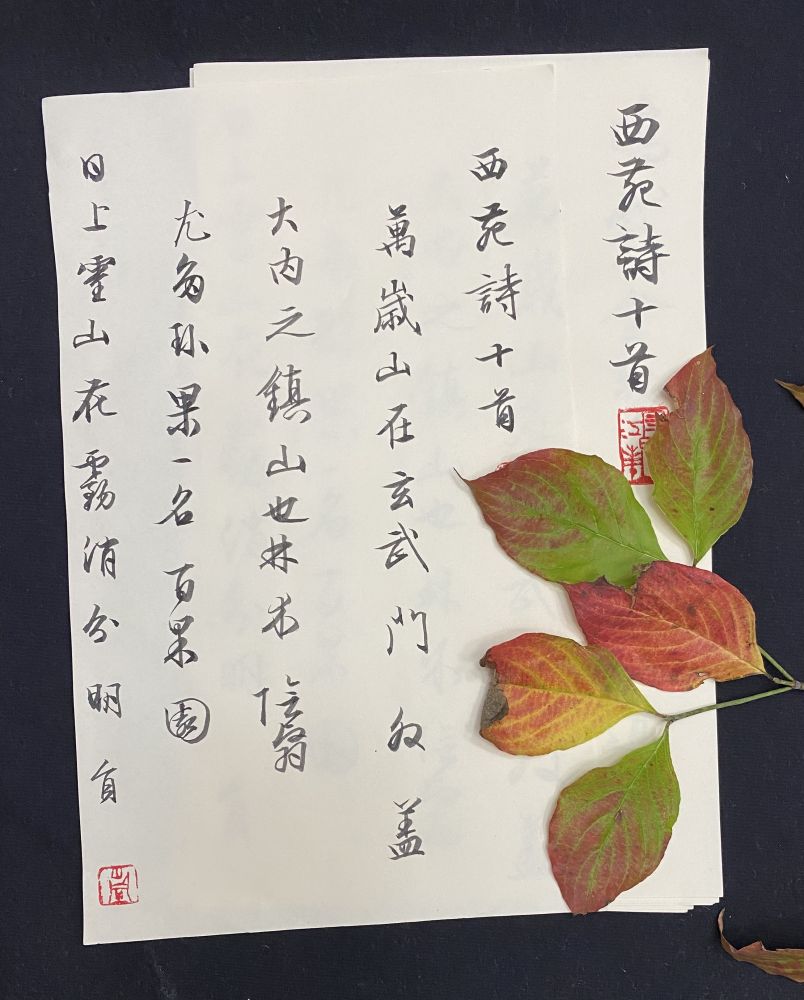 西苑詩十首
西苑詩十首
萬歲山在玄武門外蓋
大内之鎮山也林木陰翳
尤多珍果一名百果園
日上靈山花霧消分明員